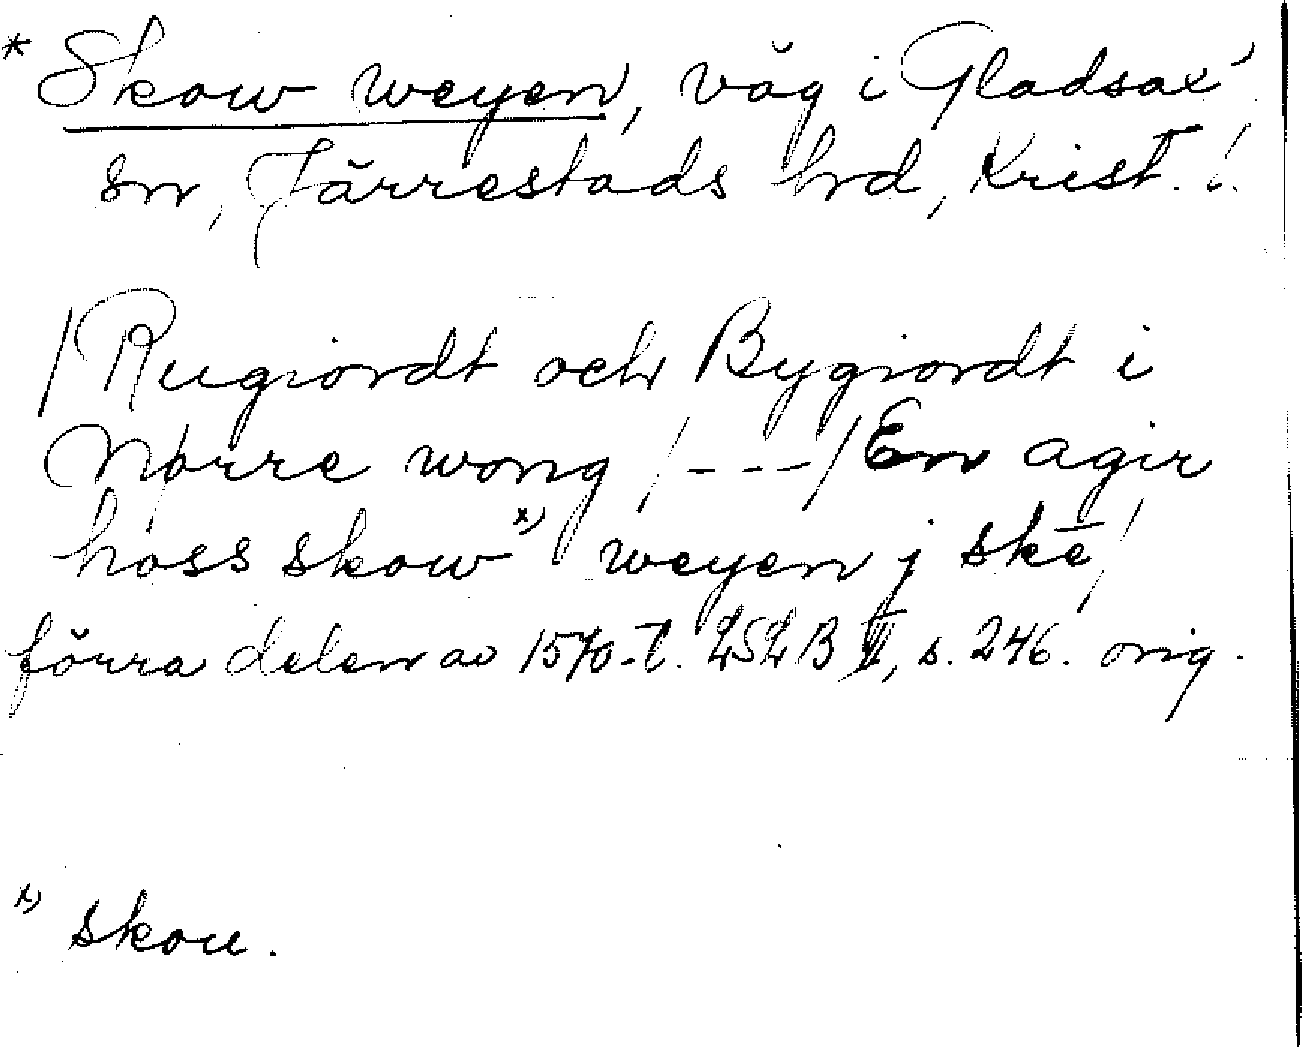 * Skow weyen, väg i Gladsax'
sn, Järrestads hd, Krist. l.
/Rugiordt och Bygiordt i
Nørre wong /---/ En agir
hoss skow x) weyen j skē/
förra delen av 1570-t. LSLB II, s. 246. orig.
x) skou.